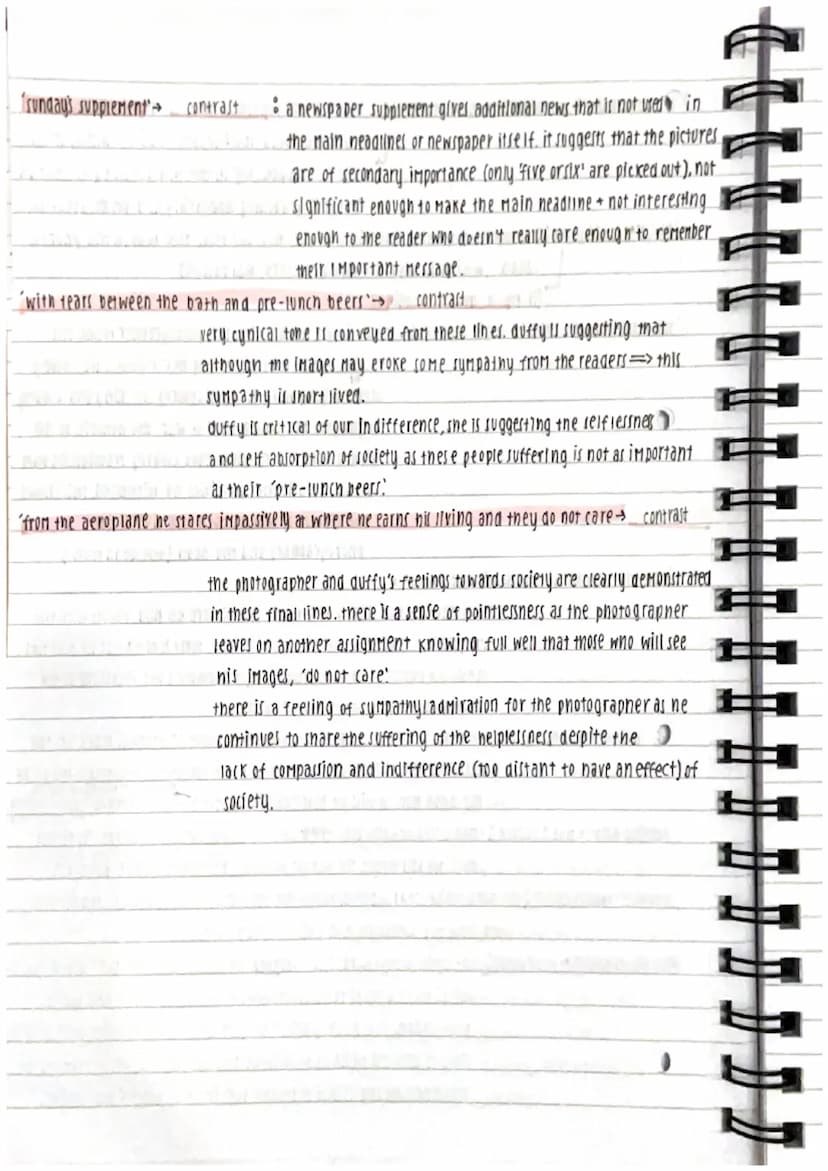 'sunday's supplement' → contrast : a newspaper supplement gives additional news that is not used in
the main headlines or newspaper itself. it suggests that the pictures
are of secondary importance (only 'five or six' are picked out), not
significant enough to make the main headline + not interesting
enough to the reader who doesn't really care enough to remember
their important message.
'with tears between the bath and pre-lunch beers' → contrast
very cynical tone is conveyed from these lines. duffy is suggesting that
although the images may evoke some sympathy from the readers ⇒ this
sympathy is short lived.
duffy is critical of our indifference, she is suggesting the selflessness
and self absorption of society as these people suffering is not as important
as their 'pre-lunch beers.'
'from the aeroplane he stares impassively at where he earns his living and they do not care → contrast
the photographer and duffy's feelings towards society are clearly demonstrated
in these final lines. there is a sense of pointlessness as the photographer
leaves on another assignment knowing full well that those who will see
his images, 'do not care.'
there is a feeling of sympathy/admiration for the photographer as he
continues to share the suffering of the helplessness despite the
lack of compassion and indifference (too distant to have an effect) of
society.